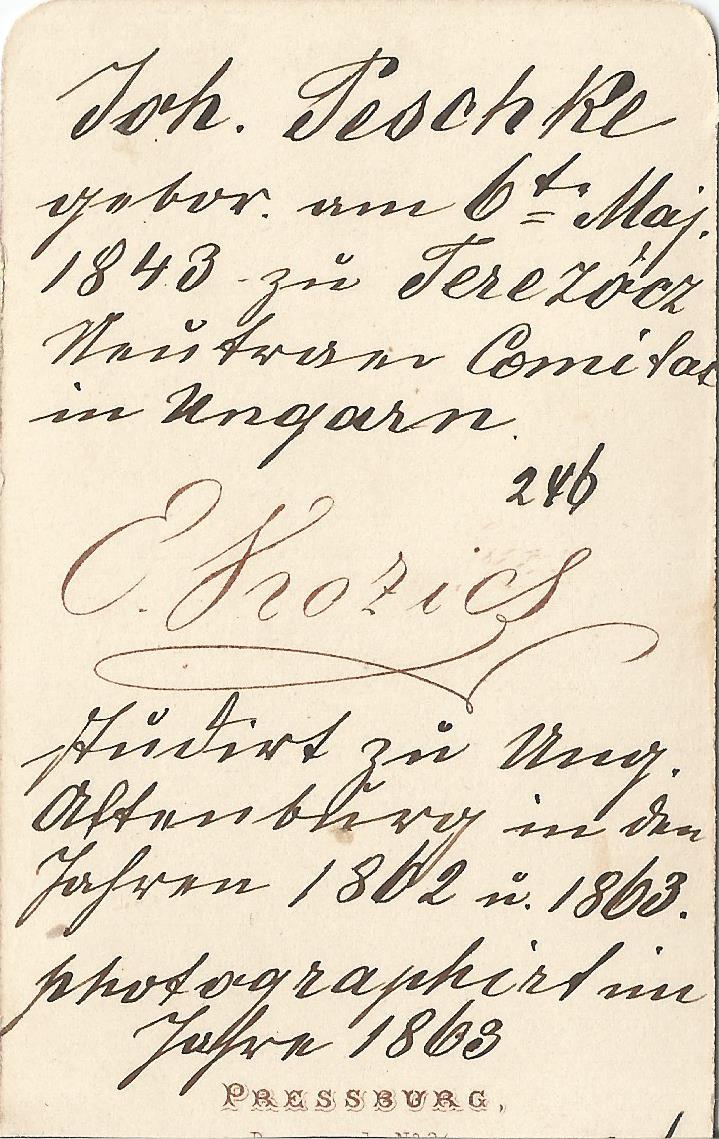 Joh. Peschke
gebor. am 6te Maj.
1843 zu Terezócz
Neutraer Comitat
in Ungarn.
246
E. Kozics
studirt zu Ung.
Altenburg in den
Jahren 1862 u. 1863.
photographirt im
Jahre 1863
PRESSBURG,